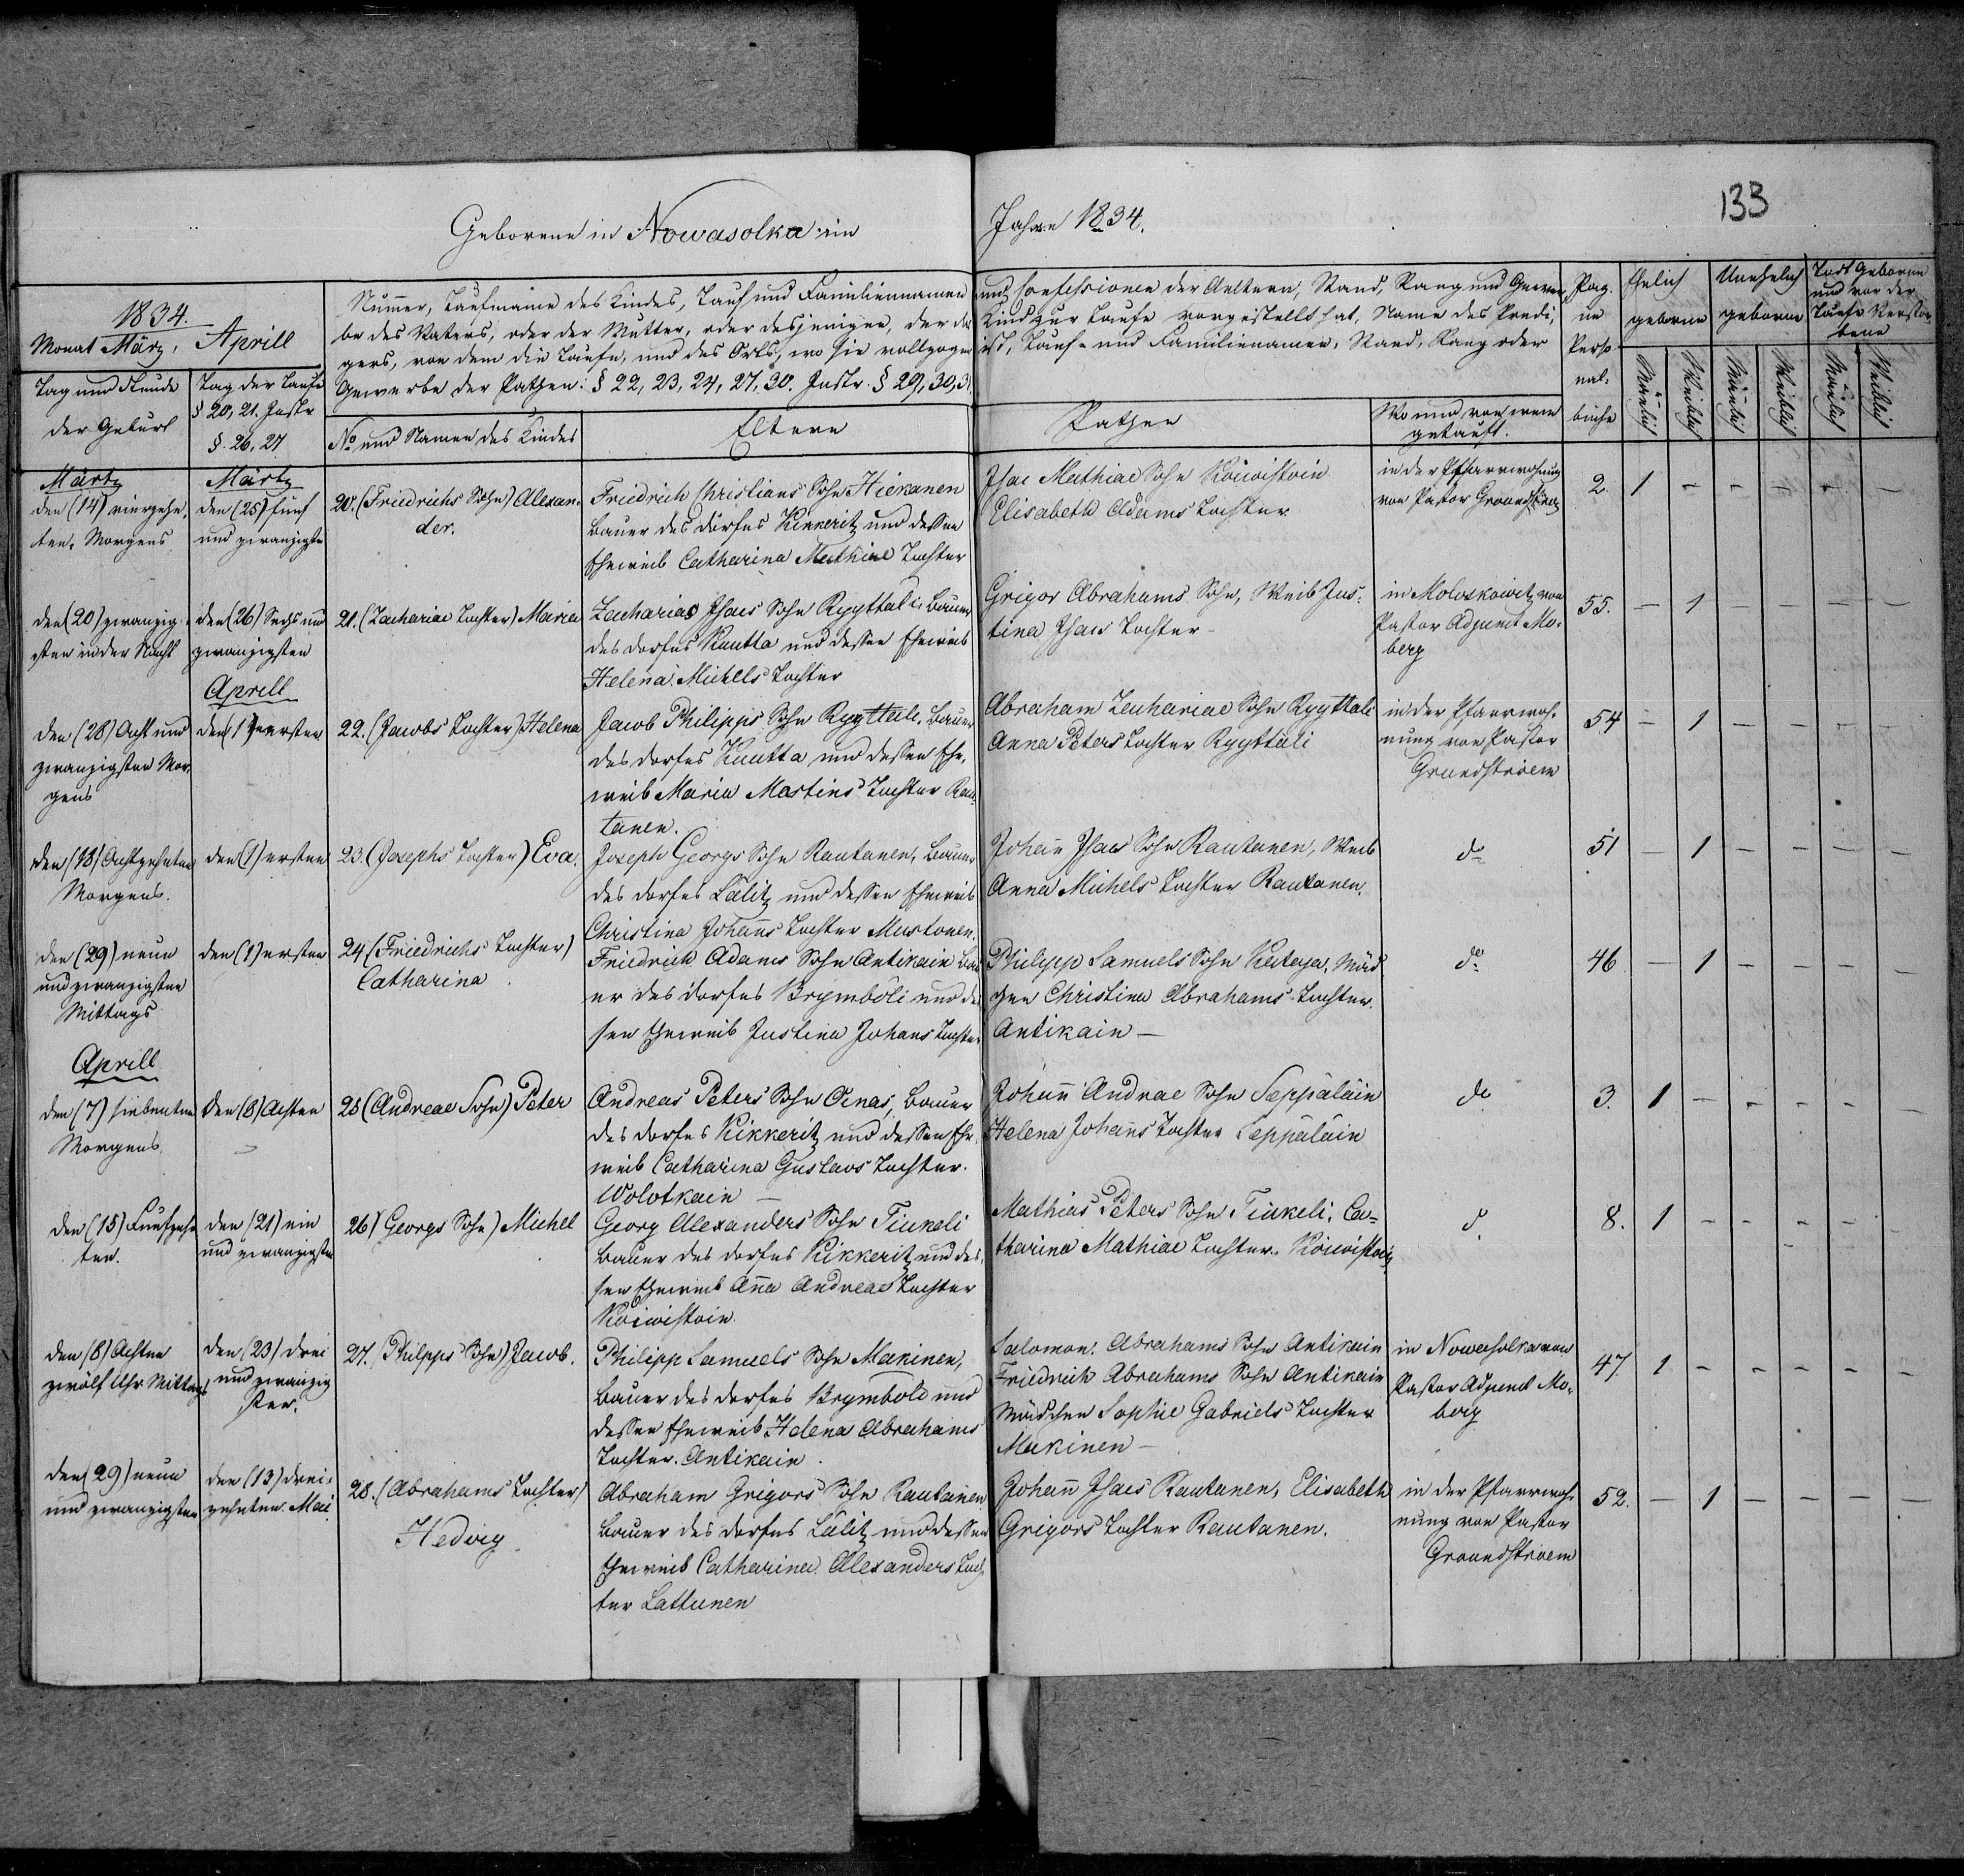 133
Geborene in Nowasolka im Jahre 1834.
1834.
Monat März, Aprill
Tag und Stunde
der Geburt
Tag der Taufe
§ 20, 21. Instr.
§. 26, 27
Num̄er, Taufname des Kindes, Tauf und Familiennamen und Confessionen der Aeltern, Stand, Rang und Gewer,
be des Vaters, oder der Mutter, oder desjenigen, der das Kind zur Taufe vorgestellt hat, Name des Predi,
gers, von dem die Taufe, und des Orts, wo sie vollzogen ist, Tauf- und Familiennamen, Stand, Rang oder
Gewerbe der Pathen: § 22, 23, 24, 27, 30. Instr. § 29, 30, 31
No und Namen des Kindes
Eltern
Pathen
Wo und von wem
getauft.
Pag.
im
Perso
nal-
buche
Ehelich
geborne
Unehelich
geborne
Todt Geborne
und vor der
Taufe Verstor
bene
Mänlich
Weiblich
Mänlich
Weiblich
Mänlich
Weiblich
Märtz
den (14) vierzehn,
ten, Morgens
Märtz
den (25) fünf
und zwanzigsten
20. (Friedrichs Sohn) Alexan-
der.
Friedrich Christians Sohn Hiekanen
Bauer des dorfes Kikkeritz und dessen
Eheweib Catharina Mathiae Tochter
Isac Mathiae Sohn Koiwistoin
Elisabeth Adams Tochter
in der Pfarrwohnung
von Pastor Groundstroem
2. 1 - - - - -
den (20) zwanzig-
sten in der Nacht
den (26) Sechs und
zwanzigsten
21. (Zachariae Tochter) Maria
Zacharias Isacs Sohn Ryyttali, Bauer
des dorfes Kautta und dessen Eheweib
Helena Michels Tochter
Grigor Abrahams Sohn, Weib Jus-
tina Isacs Tochter -
in Moloskowitz von
Pastor Adjunct Mo-
berg
55. - 1 - - - -
Aprill
den (28) Acht und
zwanzigsten Mor,
gens
den (1) ersten
22. (Jacobs Tochter) Helena
Jacob Philipps Sohn Ryyttali, Bauer
des dorfes Kautta und dessen Ehe,
weib Maria Martins Tochter Rau-
tanen.
Abraham Zachariae Sohn Ryyttali
Anna Peters Tochter Ryyttali
in der Pfarrwoh-
nung von Pastor
Grundstroem
54 - 1 - - - -
den (18) Achtzehnten
Morgens.
den (1) ersten
23. (Josephs Tochter) Eva.
Joseph Georgs Sohn Rautanen, Bauer
des dorfes Lälitz und dessen Eheweib
Christina Johan̄s Tochter Mustonen.
Johan̄ Isacs Sohn Rautanen, Weib
Anna Michels Tochter Rautanen.
do
51 - 1 - - - -
den (29) neun
und zwanzigsten
Mittags
den (1) ersten
24. (Friedrichs Tochter)
Catharina
Friedrich Adams Sohn Antikain Bau
er des dorfes Brymboli und des
sen Eheweib Justina Johans Tochter
Philipp Samuels Sohn Kataja, Mäd
chen Christina Abrahams Tochter
Antikain -
do
46 - 1 - - - -
Aprill
den (7) siebenten
Morgens
den (8) Achten
25 (Andreae Sohn) Peter
Andreas Peters Sohn Oinas, Bauer
des dorfes Kikkeritz und dessen Ehe,
weib Catharina Gustavs Tochter
Wolotkain -
Johan̄ Andrae Sohn Seppäläin
Helena Johan̄s Tochter Seppäläin
do
3. 1 - - - - -
den (15) Funfzehn
ten.
den (21) ein
und zwanzigsten
26) Georgs Sohn) Michel
Georg Alexanders Sohn Tiukeli
Bauer des dorfes Kikkeritz und des,
sen Eheweib An̄a Andreae Tochter
Koiwistoin.
Mathias Peters Sohn Tiukeli, Ca-
tharina Mathiae Tochter Koiwistoin
do
8. 1 - - - - -
den (8) Achten
zwölf Uhr Mittags
den (23) drei
und zwanzig
sten.
27. (Philpps Sohn) Jacob.
Philipp Samuels Sohn Makinen,
Bauer des dorfes Brymboli und
dessen Eheweib Helena Abrahams
Tochter Antikain.
Salomon Abrahams Sohn Antikain
Friedrich Abrahams Sohn Antikain
Mädchen Sophie Gabriels Tochter
Makinen -
in Nowasolka von
Pastor Adjunct Mo-
berg
47. 1 - - - - -
den (29) neun
und zwanzigsten
den (13) drei-
zehnten Mai
28. (Abrahams Tochter)
Hedwig
Abraham Grigors Sohn Rautanen
Bauer des dorfes Lälitz und dessen
Eheweib Catharina Alexanders Toch,
ter Lattunen
Johan̄ Isacs Rautanen, Elisabeth
Grigors Tochter Rautanen.
in der Pfarrwoh-
nung von Pastor
Groundstroem
52. - 1 - - - -